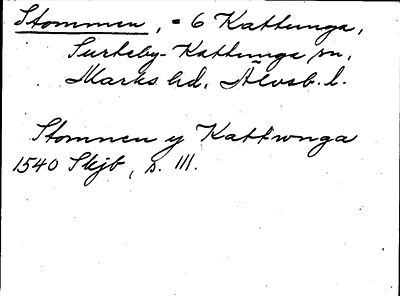 Stommen, - 6 Kattunga,
Surteby-Kattunga sn,
Marks hd, Älvsb. l.
Stomnen y Kattwnga
1540 Skjb, s. 111.